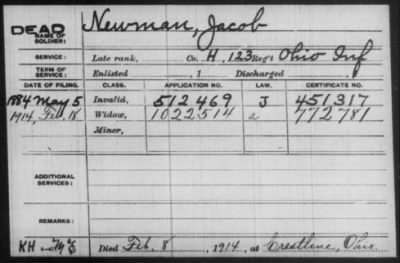 DEAD
NAME OF SOLDIER: Newman, Jacob
SERVICE: Late rank, Co. H, 123 Reg't Ohio Inf
TERM OF SERVICE: Enlisted , 1 Discharged , 1
DATE OF FILING. CLASS. APPLICATION NO. LAW. CERTIFICATE NO.
1884 May 5 Invalid, 512469 J 451317
1914, Feb. 18 Widow, 1022514 a 772781
Minor,
ADDITIONAL SERVICES:
REMARKS:
KH Died Feb. 8 , 1914, at Crestline, Ohio.